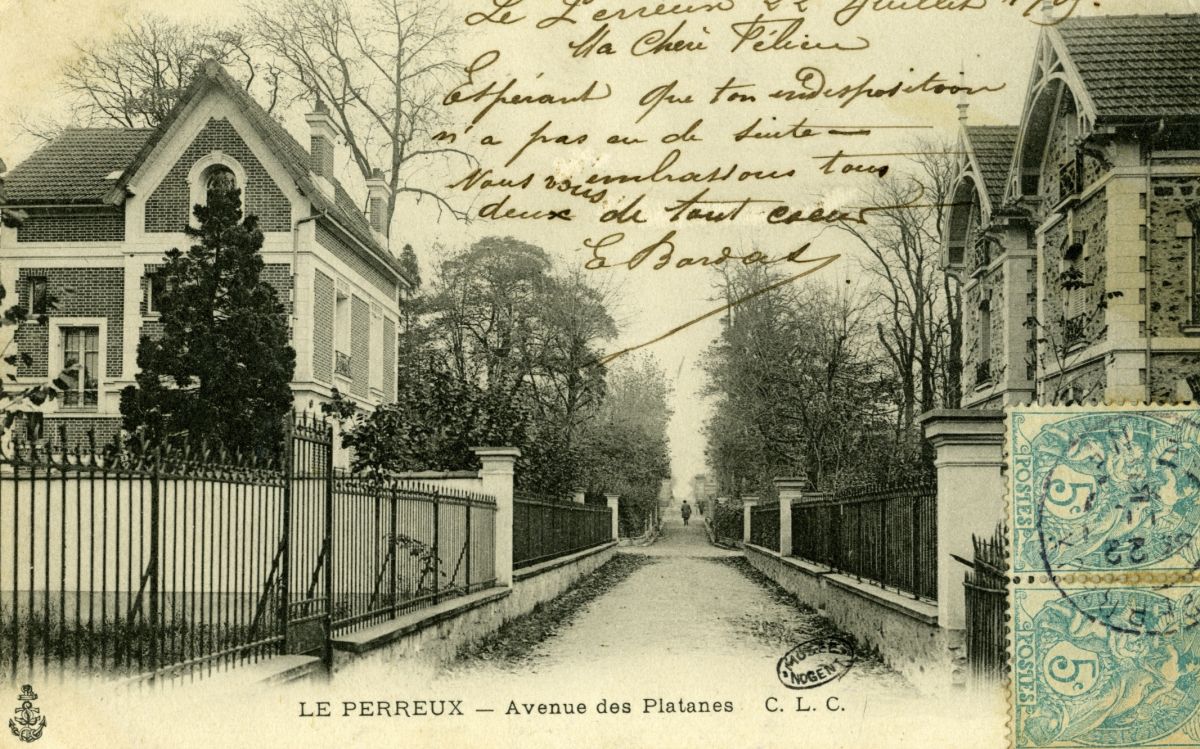 Le Perreux 22 Juillet
Ma Cheri Félicie
Espérant que ton indisposition
n'a pas eu de suite —
Nous vous embrassons tous
deux de tout coeur
E Bordas
POSTES
5c
22
POSTES
5c
MUSEE
NOGENT
LE PERREUX — Avenue des Platanes C. L. C.